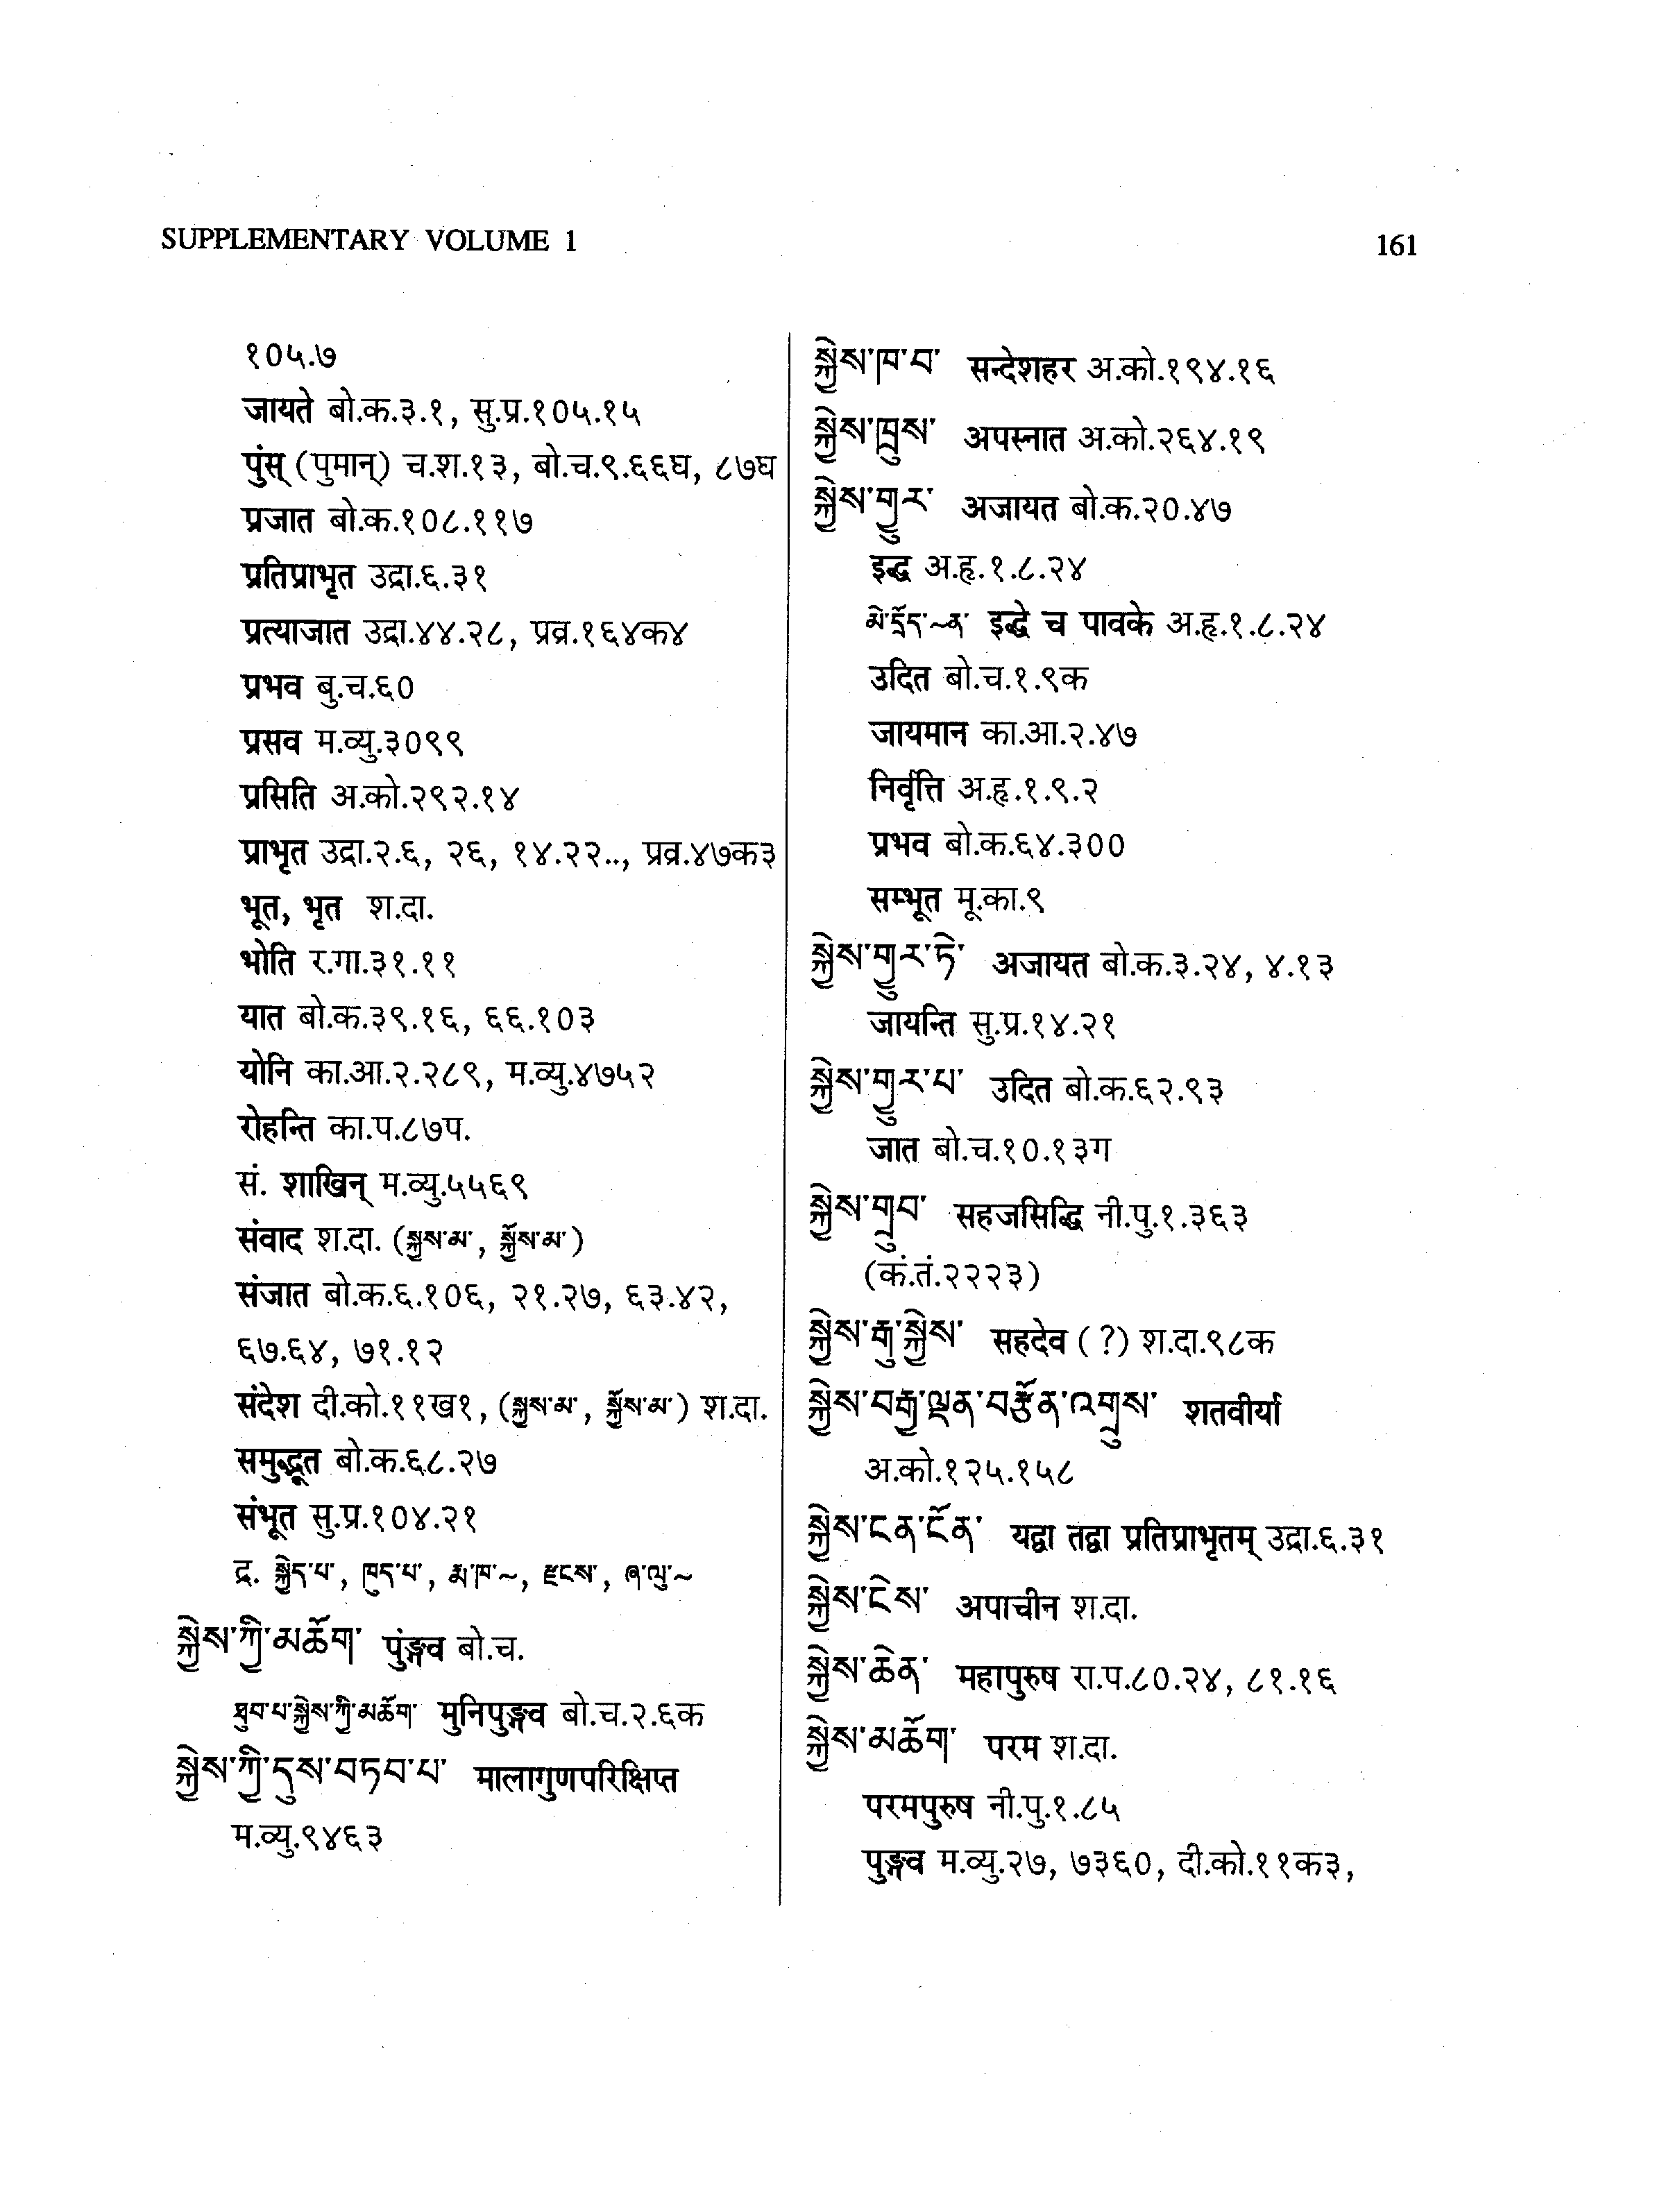 SUPPLEMENTARY VOLUME 1
161
१०५.७
जायते बो.क.३.१, सु.प्र.१०५.१५
पुंस् (पुमान्) च.श.१३, बो.च.९.६६घ, ८७घ
प्रजात बो.क.१०८.११७
प्रतिप्राभृत उद्रा.६.३१
प्रत्याजात उद्रा.४४.२८, प्रव्र.१६४क४
प्रभव बु.च.६०
प्रसव म.व्यु.३०९९
प्रसिति अ.को.२९२.१४
प्राभृत उद्रा.२.६, २६, १४.२२.., प्रव्र.४७क३
भूत, भृत श.दा.
भोति र.गा.३१.११
यात बो.क.३९.१६, ६६.१०३
योनि का.आ.२.२८९, म.व्यु.४७५२
रोहन्ति का.प.८७प.
सं. शाखिन् म.व्यु.५५६९
संवाद श.दा. (སྐྱས་མ་, སྐྱོས་མ་)
संजात बो.क.६.१०६, २१.२७, ६३.४२,
६७.६४, ७१.१२
संदेश दी.को.११ख१, (སྐྱས་མ་, སྐྱོས་མ་) श.दा.
समुद्भूत बो.क.६८.२७
संभूत सु.प्र.१०४.२१
द्र. སྐྱེད་པ་, ཁུད་པ་, རྨ་ཁ་~, རྫངས་, ཞ་ལུ་~
སྐྱེས་ཀྱི་མཆོག་ पुंङ्गव बो.च.
ཐུབ་པ་སྐྱེས་ཀྱི་མཆོག་ मुनिपुङ्गव बो.च.२.६क
སྐྱེས་ཀྱི་དུས་བཏབ་པ་ मालागुणपरिक्षिप्त
म.व्यु.९४६३
སྐྱེས་ཁ་བ་ सन्देशहर अ.को.१९४.१६
སྐྱེས་ཁྲུས་ अपस्नात अ.को.२६४.१९
སྐྱེས་གྱུར་ अजायत बो.क.२०.४७
इद्ध अ.हृ.१.८.२४
མེ་དྲོད་~ན་ इद्धे च पावके अ.हृ.१.८.२४
उदित बो.च.१.९क
जायमान का.आ.२.४७
निर्वृत्ति अ.हृ.१.९.२
प्रभव बो.क.६४.३००
सम्भूत मू.का.९
སྐྱེས་གྱུར་ཏེ་ अजायत बो.क.३.२४, ४.१३
जायन्ति सु.प्र.१४.२१
སྐྱེས་གྱུར་པ་ उदित बो.क.६२.९३
जात बो.च.१०.१३ग
སྐྱེས་གྲུབ་ सहजसिद्धि नी.पु.१.३६३
(कं.तं.२२२३)
སྐྱེས་རྒུ་སྐྱེས་ सहदेव (?) श.दा.९८क
སྐྱེས་བརྒྱ་ལྡན་བརྩོན་འགྲུས་ शतवीर्या
अ.को.१२५.१५८
སྐྱེས་ངན་ངོན་ यद्वा तद्वा प्रतिप्राभृतम् उद्रा.६.३१
སྐྱེས་ངེས་ अपाचीन श.दा.
སྐྱེས་ཆེན་ महापुरुष रा.प.८०.२४, ८१.१६
སྐྱེས་མཆོག་ परम श.दा.
परमपुरुष नी.पु.१.८५
पुङ्गव म.व्यु.२७, ७३६०, दी.को.११क३,